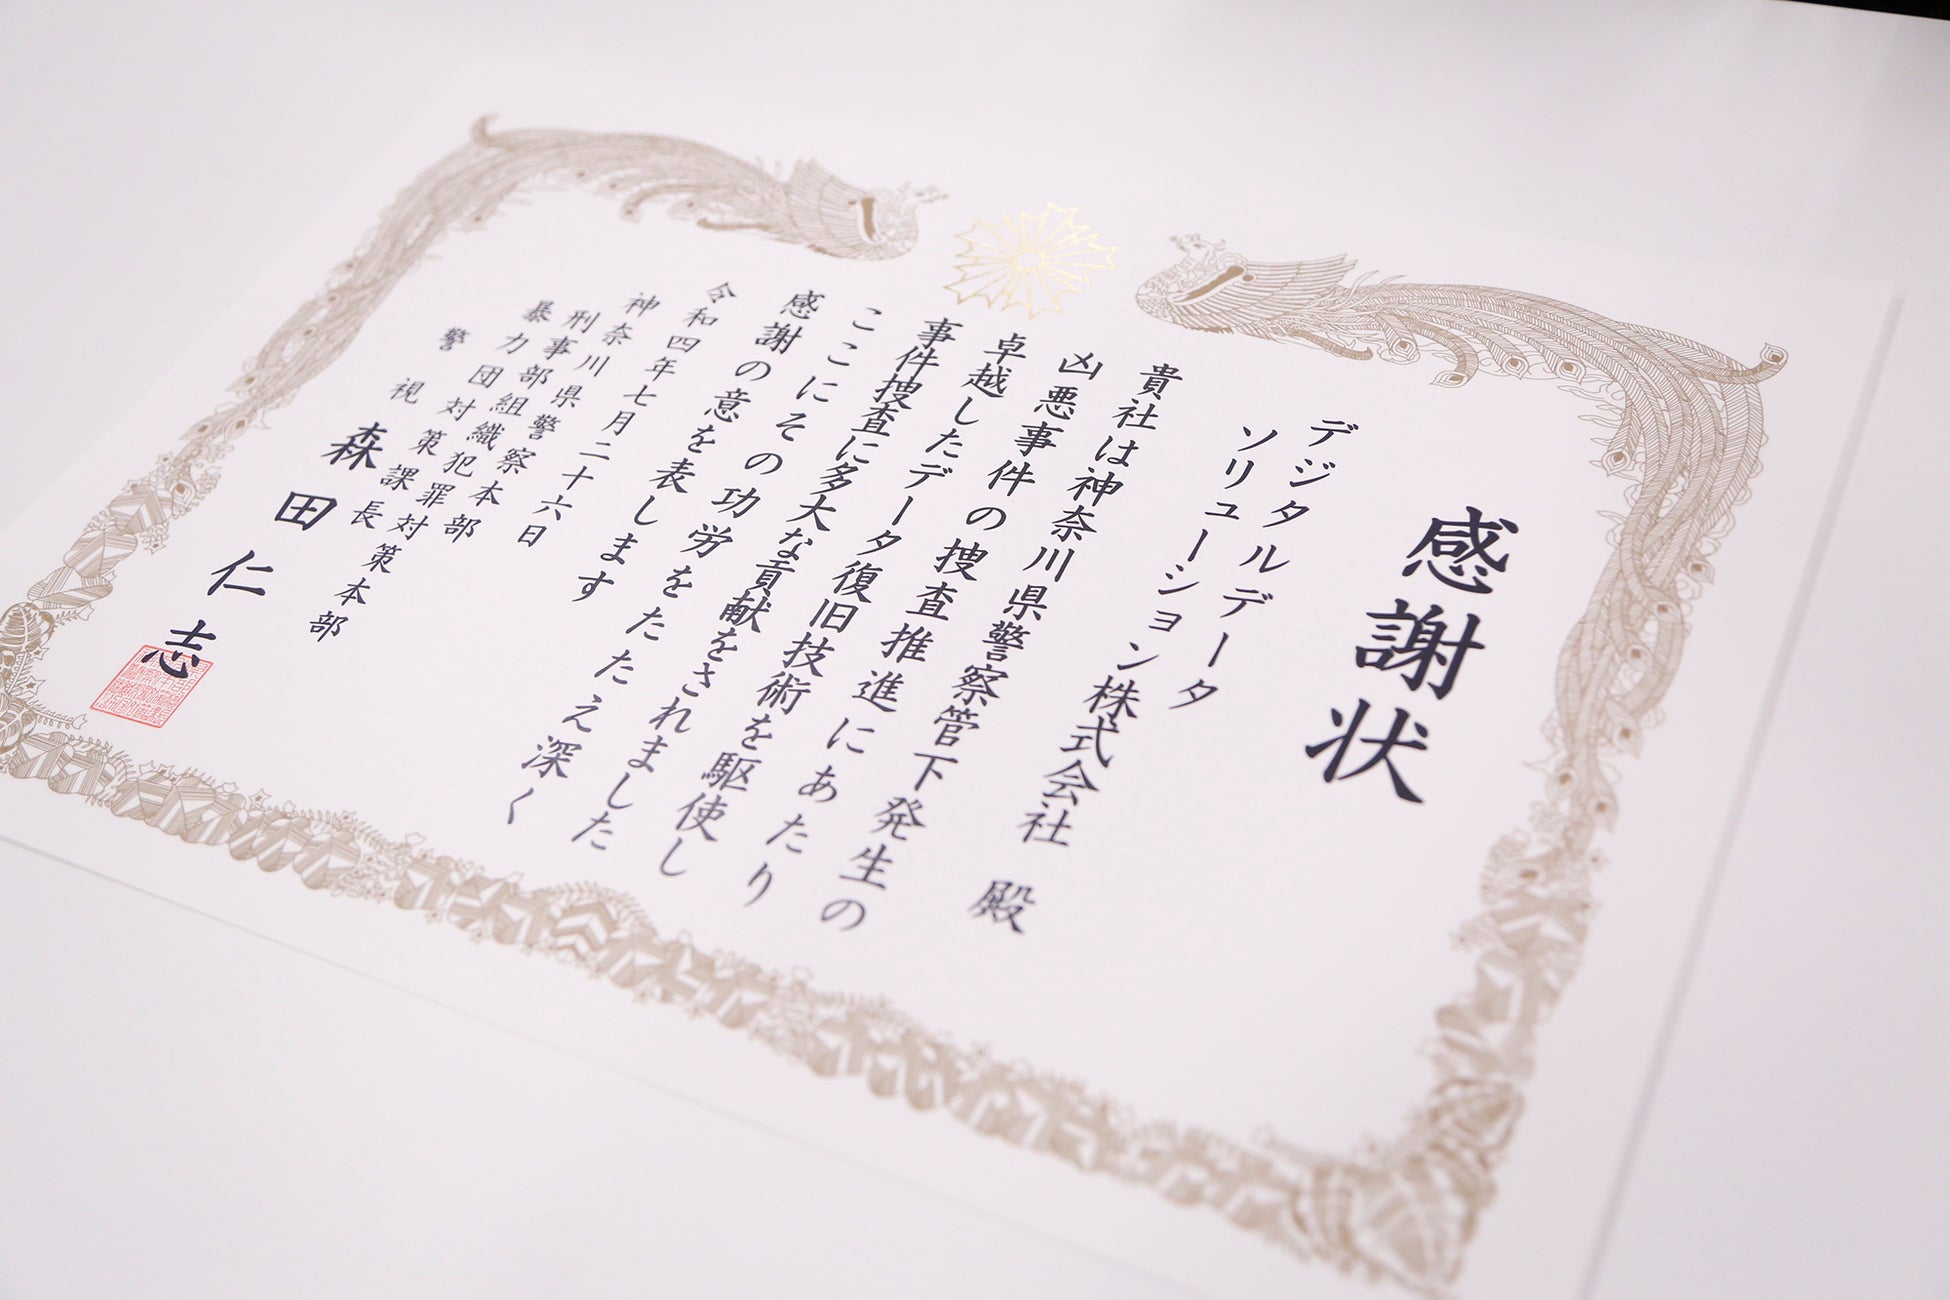 感謝状
デジタルデータ
ソリューション株式会社 殿
貴社は神奈川県警察管下発生の
凶悪事件の捜査推進にあたり
卓越したデータ復旧技術を駆使し
事件捜査に多大な貢献をされました
ここにその功労をたたえ深く
感謝の意を表します
令和四年七月二十六日
神奈川県警察本部
刑事部組織犯罪対策本部
暴力団対策課長
警視 森田仁志